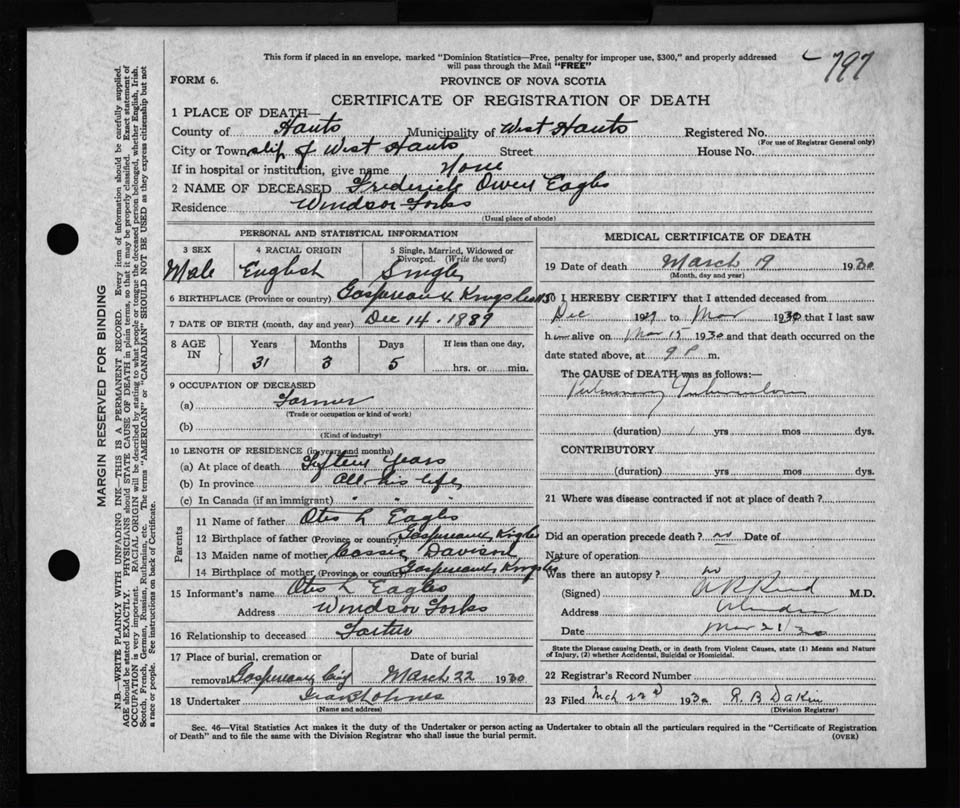 797
This form if placed in an envelope, marked "Dominion Statistics—Free, penalty for improper use, $300," and properly addressed
will pass through the Mail "FREE"
FORM 6.
PROVINCE OF NOVA SCOTIA
CERTIFICATE OF REGISTRATION OF DEATH
1 PLACE OF DEATH—
County of Hants Municipality of West Hants Registered No.
(For use of Registrar General only)
City or Township of West Hants Street House No.
If in hospital or institution, give name None
2 NAME OF DECEASED Frederick Owen Eagles
Residence Windsor Forks
(Usual place of abode)
PERSONAL AND STATISTICAL INFORMATION
3 SEX 4 RACIAL ORIGIN 5 Single, Married, Widowed or Divorced. (Write the word)
Male English Single
6 BIRTHPLACE (Province or country) Gaspereaux Kings
7 DATE OF BIRTH (month, day and year) Dec 14. 1889
8 AGE IN Years Months Days If less than one day,
31 3 5 hrs. or min.
9 OCCUPATION OF DECEASED
(a) Farmer
(Trade or occupation or kind of work)
(b)
(Kind of industry)
10 LENGTH OF RESIDENCE (in years and months)
(a) At place of death Fifteen Years
(b) In province All his life
(c) In Canada (if an immigrant) " " "
Parents
11 Name of father Otis L Eagles
12 Birthplace of father (Province or country) Gaspereaux Kings
13 Maiden name of mother Cassie Davison
14 Birthplace of mother (Province or country) Gaspereaux Kings
15 Informant's name Otis L Eagles
Address Windsor Forks
16 Relationship to deceased Father
17 Place of burial, cremation or removal Date of burial
Gaspereaux March 22 1930
18 Undertaker
(Name and address)
MEDICAL CERTIFICATE OF DEATH
19 Date of death March 19 1930
(Month, day and year)
20 I HEREBY CERTIFY that I attended deceased from
Dec 1929 to Mar 1930 that I last saw
h alive on Mar 15 1930 and that death occurred on the
date stated above, at 9 P m.
The CAUSE OF DEATH was as follows:—
Pulmonary Tuberculosis
(duration) 1 yrs mos dys.
CONTRIBUTORY
(duration) yrs mos dys.
21 Where was disease contracted if not at place of death?
Did an operation precede death? no Date of
Nature of operation
Was there an autopsy? no
(Signed) M.D.
Address Windsor
Date Mar 21/30
State the Disease causing Death, or in death from Violent Causes, state (1) Means and Nature
of Injury, (2) whether Accidental, Suicidal or Homicidal.
22 Registrar's Record Number
23 Filed Mch 22d 1930 R B Dakin
(Division Registrar)
Sec. 46—Vital Statistics Act makes it the duty of the Undertaker or person acting as Undertaker to obtain all the particulars required in the "Certificate of Registration
of Death" and to file the same with the Division Registrar who shall issue the burial permit.
(OVER)
MARGIN RESERVED FOR BINDING
N.B.—WRITE PLAINLY WITH UNFADING INK—THIS IS A PERMANENT RECORD. Every item of information should be carefully supplied.
AGE should be stated EXACTLY. PHYSICIANS should STATE CAUSE OF DEATH in plain terms, so that it may be properly classified. Exact statement of
OCCUPATION is very important. RACIAL ORIGIN will be described by stating to what people or tongue the deceased person belonged, whether English, Irish,
Scotch, French, German, Russian, Ruthenian, etc. The terms "AMERICAN" or "CANADIAN" SHOULD NOT BE USED as they express citizenship but not
a race or people. See instructions on back of Certificate.